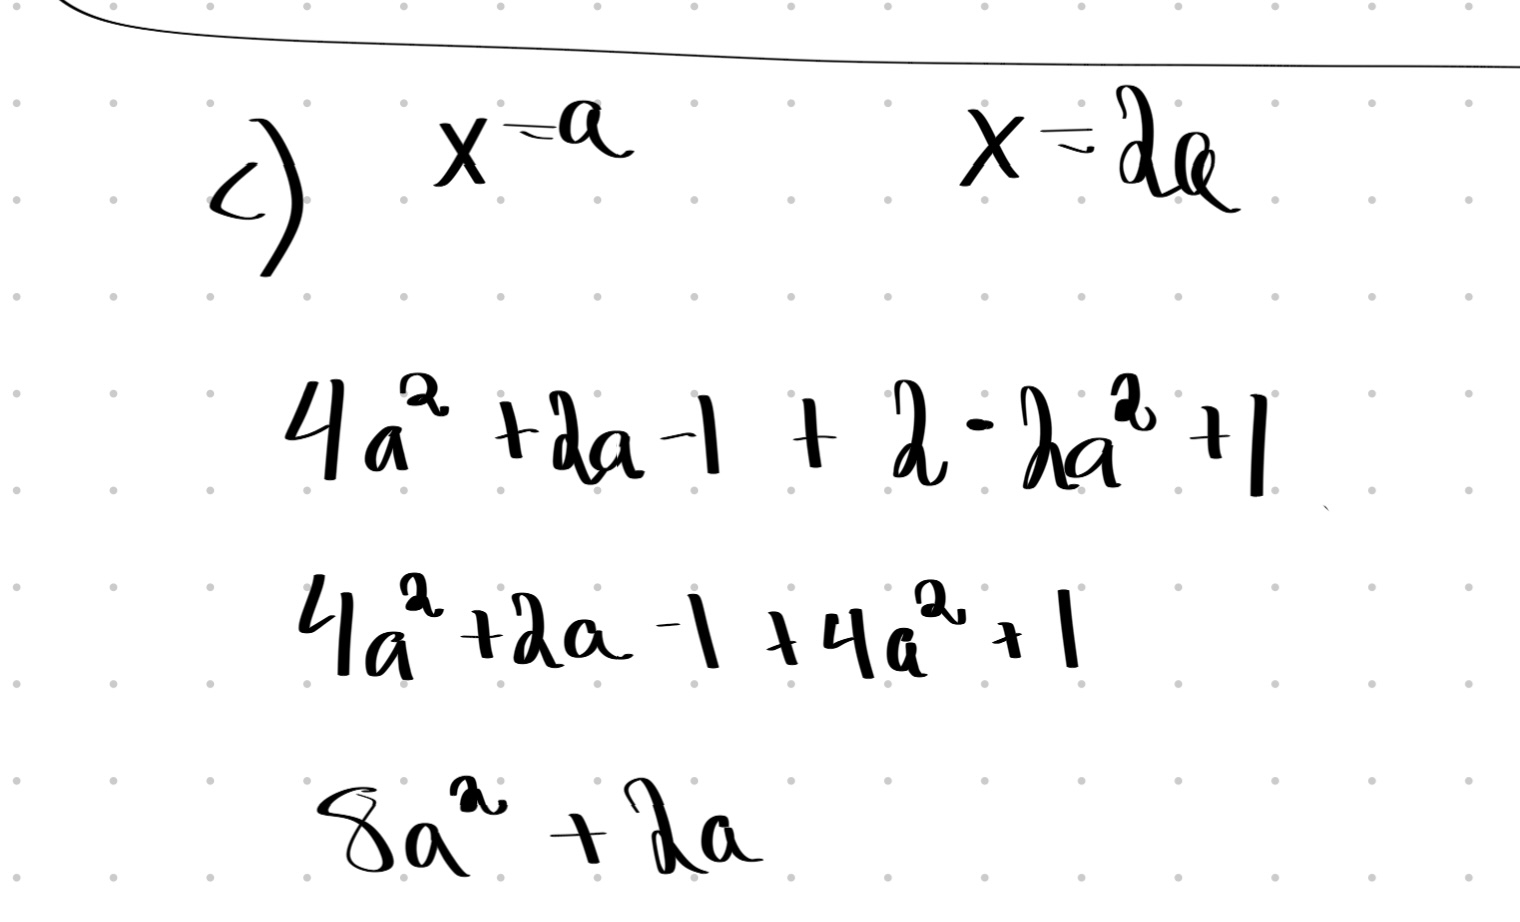 c) x=a x=2a
4a² +2a -1 + 2·2a² +1
4a² +2a -1 +4a² +1
8a² +2a